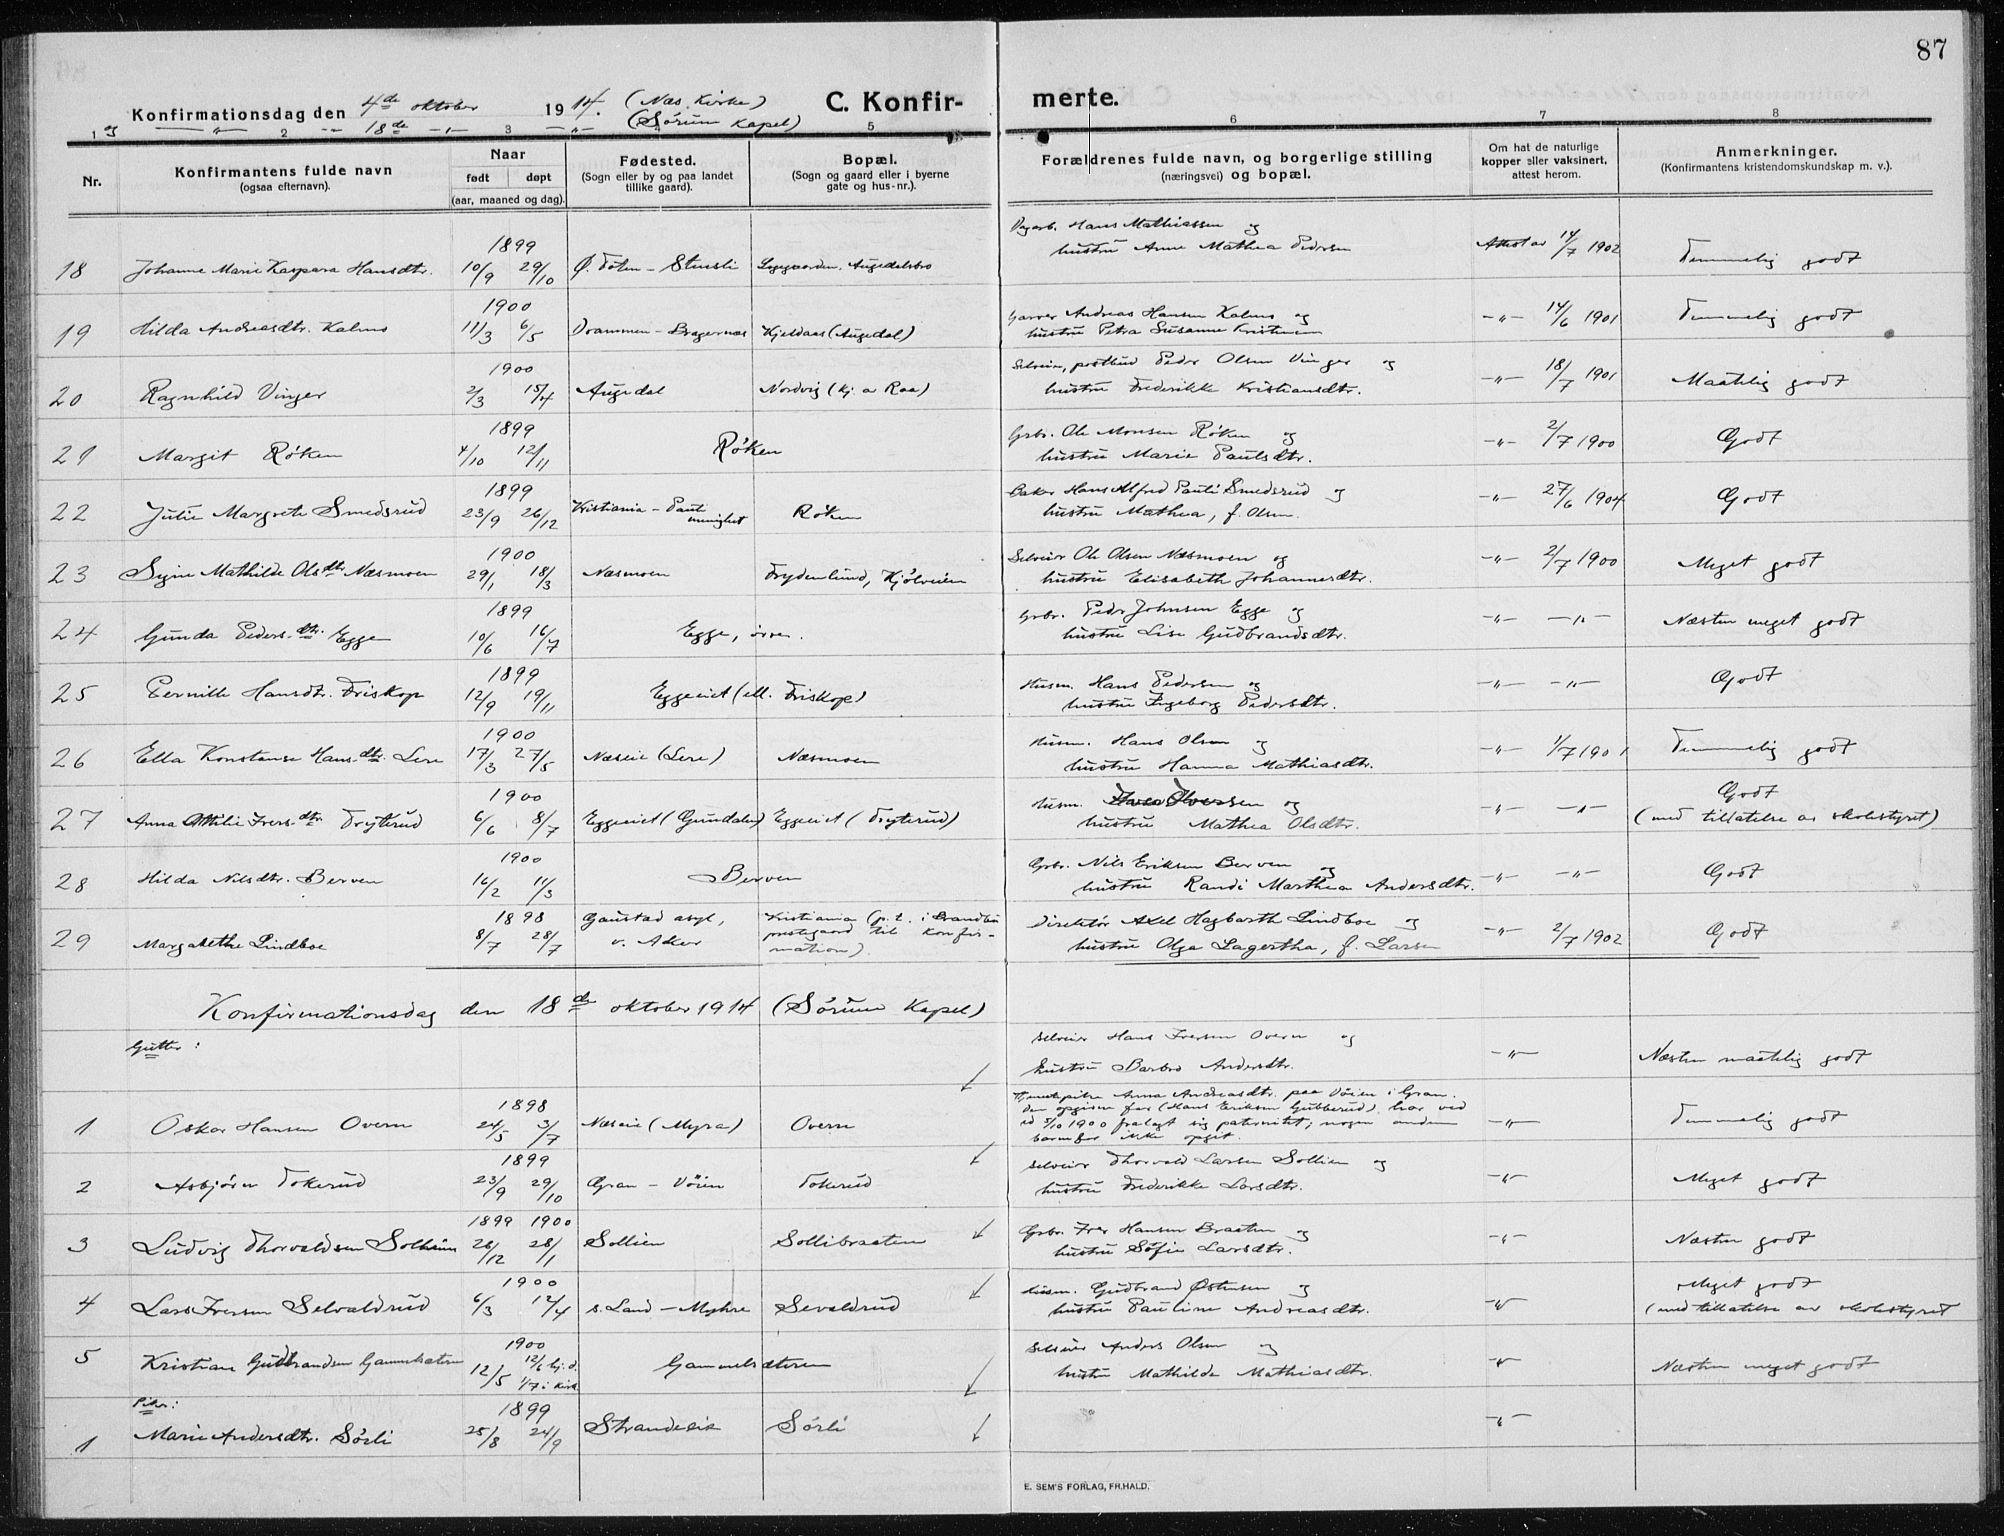 87
Konfirmationsdag den 4de oktober 1914. (Næs Kirke) C. Konfirmerte.
og — " — 18de — " — (Sørum Kapel)
1 2 3 4 5 6 7 8
Nr. Konfirmantens fulde navn (ogsaa efternavn). Naar født døpt (aar, maaned og dag). Fødested. (Sogn eller by og paa landet tillike gaard). Bopæl. (Sogn og gaard eller i byerne gate og hus-nr.). Forældrenes fulde navn, og borgerlige stilling (næringsvei) og bopæl. Om hat de naturlige kopper eller vaksinert, attest herom. Anmerkninger. (Konfirmantens kristendomskundskap m. v.).
18 Johanne Marie Kaspara Hansdtr. 1899 10/9 29/10 Ø. Toten – Stensli Augedalsbro Hans Mathiassen og hustru Anne Mathea Pedersen Attest av 14/7 1902 Temmelig godt
19 Hilda Andreasdtr. Kalmo 1900 11/3 6/5 Drammen – Bragernæs Kjeldaas (Augedal) Garver Andreas Hansen Kalmo og hustru Petra Susanne Kristensen — " — 14/6 1901 Temmelig godt
20 Ragnhild Vinger 1900 2/3 15/4 Augedal Nordvig (kj. a Raa) Selveier, postbud Peder Olsen Vinger og hustru Frederikke Kristiansdtr. — " — 18/7 1901 Maatelig godt
21 Margit Røken 1899 4/10 12/11 Røken Grbr. Ole Monsen Røken og hustru Marie Paulsdtr. — " — 2/7 1900 Godt
22 Julie Margrete Smedsrud 1899 23/9 26/12 Kristiania – Pauli menighet Røken Baker Hans Alfred Pauli Smedsrud og hustru Mathea, f. Olsen. — " — 27/6 1904 Godt
23 Signe Mathilde Olsdtr. Næsmoen 1900 29/1 18/3 Næsmoen Frydenlund, Kjølveien Selveier Ole Olsen Næsmoen og hustru Elisabeth Johannesdtr. — " — 2/7 1900 Meget godt
24 Gunda Pedersdtr. Egge 1899 10/6 16/7 Egge, øvre. Grbr. Peder Johnsen Egge og hustru Lise Gudbrandsdtr. — " — — " — Næsten meget godt
25 Pernille Hansdtr. Friskop 1899 12/9 19/11 Eggeeiet (ell. Friskop) Husm. Hans Pedersen og hustru Ingeborg Pedersdtr. — " — — " — Godt
26 Ella Konstanse Hansdtr. Lere 1900 17/3 27/5 Næseie (Lere) Næsmoen Husm. Hans Olsen og hustru Hanna Mathiasdtr. — " — 1/7 1901 Temmelig godt
27 Anna Othilie Iversdtr. Fryterud 1900 6/6 8/7 Eggeeiet (Gundalen) Eggeeiet (Fryterud) Husm. Iver Iversen og hustru Mathea Olsdtr. — " — — " — Godt (med tillatelse av skolestyret)
28 Hilda Nilsdtr. Berven 1900 16/2 11/3 Berven Grbr. Nils Eriksen Berven og hustru Randi Marthea Andersdtr. — " — — " — Godt
29 Margarethe Lindboe 1898 8/7 28/7 Gaustad asyl, v. Aker Kristiania (p.t. i Brandbu prestegaard til konfirmation). Direktør Axel Hagbarth Lindboe og hustru Olga Lagertha, f. Larsen — " — 2/7 1902 Godt
Konfirmationsdag den 18de oktober 1914 (Sørum Kapel)
Gutter:
Selveier Hans Iversen Overn og hustru Barbro Andersdtr. — " — Næsten maatelig godt
1 Oskar Hansen Overn 1898 24/5 3/7 Næseie (Myra) Overn Tjenestepike Anna Andreasdtr. paa Vøien i Gran. Den opgivne far (Hans Eriksen Gubberud) har ved ed 5/10 1900 fralagt sig paternitet; nogen anden barnefar ikke opgit. — " — Temmelig godt
2 Asbjørn Tokerud 1899 23/9 29/10 Gran – Vøien Tokerud Selveier Thorvald Larsen Sollien og hustru Frederikke Larsdtr. — " — Meget godt
3 Ludvig Thorvaldsen Solheim 1899 1900 26/12 28/1 Sollien Sollibraaten Grbr. Iver Hansen Braaten og hustru Sofie Larsdtr. — " — Næsten godt
4 Lars Iversen Selvaldrud 1900 6/3 12/4 S. Land – Myhre Sevaldrud Husm. Gudbrand Østensen og hustru Pauline Andreasdtr. — " — Meget godt (med tillatelse av skolestyret
5 Kristian Gudbrandsen Gammelsæteren 1900 12/5 12/6 hj.d. 1/7 i kirk. Gammelsæteren Selveier Anders Olsen og hustru Mathilde Mathiasdtr. — " — Næsten meget godt
Piker:
1 Marie Andersdtr. Sørli 1899 25/8 24/9 Strandeeie Sørli — " —
E. SEM'S FORLAG, FR.HALD.